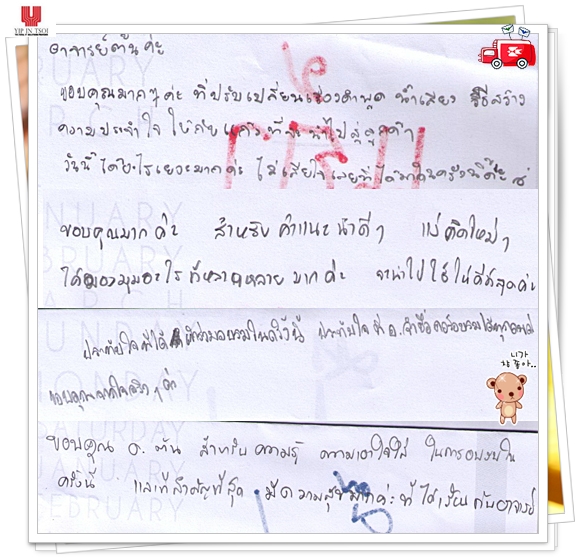 YIP IN TSOI
อาจารย์ตันค่ะ
ขอบคุณมากๆค่ะ ที่ปรับเปลี่ยนเรื่องคำพูด น้ำเสียง วิธีสร้าง
ความประทับใจ ให้กับ
วันนี้ได้อะไรเยอะมากค่ะ ไม่เสียใจเลยที่ได้มาในครั้งนี้
ขอบคุณมากค่ะ สำหรับคำแนะนำดีๆ แง่คิดใหม่ๆ
ได้มุมมองอะไรที่หลากหลายมากค่ะ จะนำไปใช้ให้ดีที่สุดค่ะ
ประทับใจที่ได้ เข้าร่วมอบรมในครั้งนี้ ประทับใจที่ อ. จำชื่อ
ขอบคุณจากใจจริงๆค่ะ
니가
참 좋아..
ขอบคุณ อ. ตัน สำหรับความรู้ ความเอาใจใส่ ในการอบรมใน
ครั้งนี้ และที่สำคัญที่สุด มีความสุขมากค่ะที่ได้เรียนกับอาจารย์